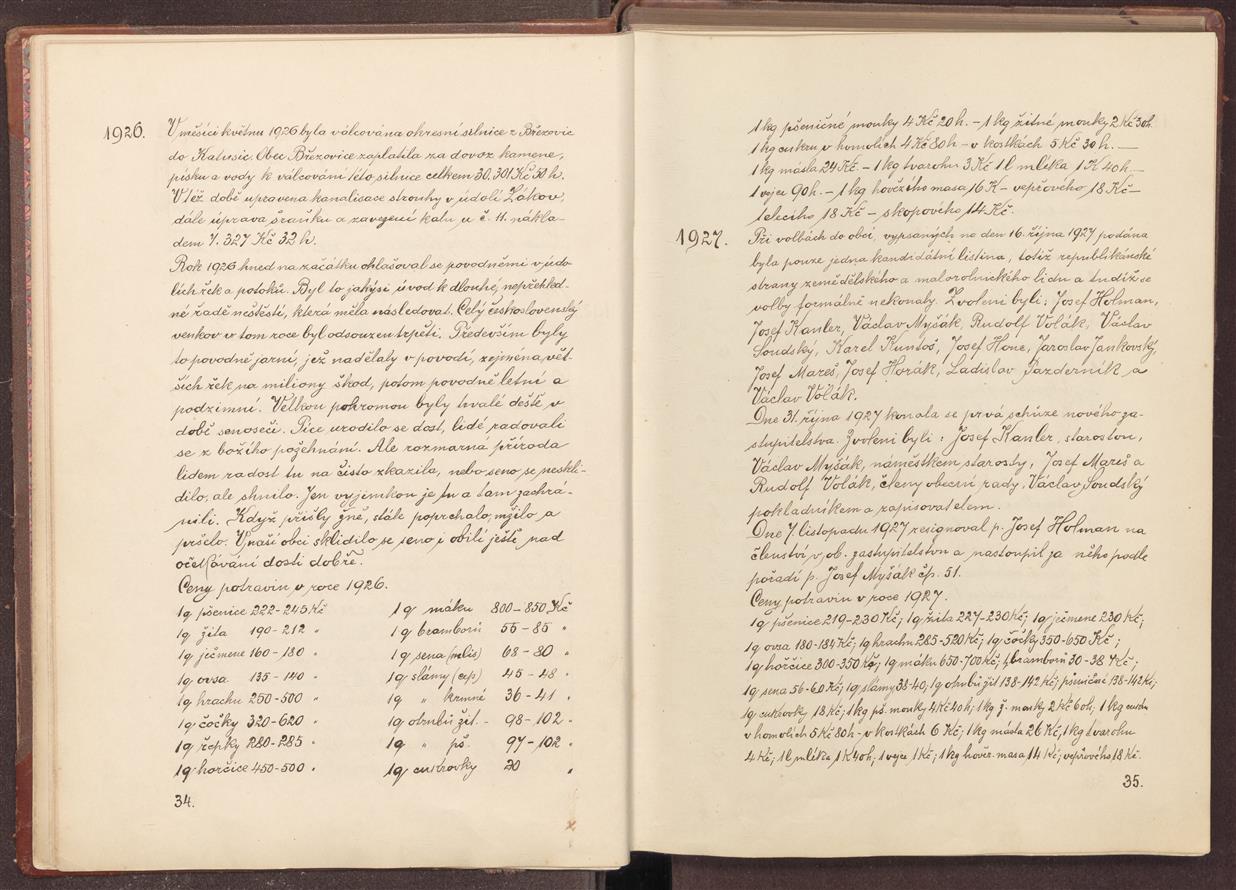 1926. V měsíci květnu 1926 byla válcována okresní silnice z Březovic
do Katusic. Obec Březovice zaplatila za dovoz kamene,
písku a vody k válcování této silnice celkem 30.301 Kč 50 h.
V též době upravena kanalisace strouhy v údolí Žákov,
dále úprava šraňku a zavezení kalu u č. 11. nákla-
dem 7.327 Kč 32 h.
Rok 1926 hned na začátku ohlašoval se povodněmi v údo-
lích řek a potoků. Byl to jakýsi úvod k dlouhé, nepřehled-
né řadě neštěstí, která měla následovat. Celý československý
venkov v tom roce byl odsouzen trpěti. Především byly
to povodně jarní, jež nadělaly v povodí, zejména vět-
ších řek na miliony škod, potom povodně letní a
podzimní. Velkou pohromou byly trvalé deště v
době senoseči. Píce urodilo se dost, lidé radovali
se z božího požehnání. Ale rozmarná příroda
lidem radost tu na čisto zkazila, nebo seno se neskli-
dilo, ale shnilo. Jen vyjimkou je tu a tam zachrá-
nili. Když přišly žně, stále poprchalo, mžilo a
pršelo. V naší obci sklidilo se seno i obilí ještě nad
očekávání dosti dobře.
Ceny potravin v roce 1926.
1q pšenice 222-245 Kč 1q máku 800-850 Kč
1q žita 190-212 " 1q bramborů 55-85 "
1q ječmene 160-180 " 1q sena (lis) 68-80 "
1q ovsa 135-140 " 1q slámy (cep) 45-48 "
1q hrachu 250-500 " 1q " krmné 36-41 "
1q čočky 320-620 " 1q otrubů žit. - 98-102 "
1q řepky 280-285 " 1q " pš. 97-102 "
1q hořčice 450-500 " 1q cukrovky 20 "
34.
1 kg pšeničné mouky 4 Kč 20 h. - 1 kg žitné mouky 2 Kč 30 h.
1 kg cukru v homolích 4 Kč 80 h - v kostkách 5 Kč 30 h. -
1 kg másla 24 Kč. - 1 kg tvarohu 3 Kč 1 l mléka 1 K 40 h. -
1 vejce 90 h. - 1 kg hovězího masa 16 K - vepřového 18 Kč -
telecího 18 Kč - skopového 14 Kč.
1927. Při volbách do obcí, vypsaných na den 16. října 1927 podána
byla pouze jedna kandidátní listina, totiž republikánské
strany zemědělského a malorolnického lidu a tudíž se
volby formálně nekonaly. Zvoleni byli: Josef Holman,
Josef Kanler, Václav Myšák, Rudolf Volák, Václav
Soudský, Karel Runtoš, Josef Hone, Jaroslav Jankovský,
Josef Mareš, Josef Horák, Ladislav Pazderník a
Václav Volák.
Dne 31. října 1927 konala se prvá schůze nového za-
stupitelstva. Zvoleni byli: Josef Kanler, starostou,
Václav Myšák, náměstkem starosty, Josef Mareš a
Rudolf Volák, členy obecní rady, Václav Soudský
pokladníkem a zapisovatelem.
Dne 7. listopadu 1927 resignoval p. Josef Holman na
členství v ob. zastupitelstvu a nastoupil za něho podle
pořadí p. Josef Myšák čp. 51.
Ceny potravin v roce 1927.
1q pšenice 219-230 Kč, 1q žita 227-230 Kč; 1q ječmene 230 Kč,
1q ovsa 180-184 Kč; 1q hrachu 285-520 Kč; 1q čočky 350-650 Kč;
1q hořčice 300-350 Kč; 1q máku 650-700 Kč; 1q bramborů 30-38 Kč;
1q sena 56-60 Kč; 1q slámy 38-40; 1q otrubů žit 138-142 Kč; pšeničné 138-142 Kč;
1q cukrovky 18 Kč; 1 kg pš. mouky 4 Kč 40 h; 1 kg ž. mouky 2 Kč 60 h; 1 kg cukru
v homolích 5 Kč 80 h - v kostkách 6 Kč; 1 kg másla 26 Kč, 1 kg tvarohu
4 Kč; 1 l mléka 1 K 40 h; 1 vejce 1 Kč; 1 kg hověz. masa 14 Kč; vepřového 18 Kč.
35.